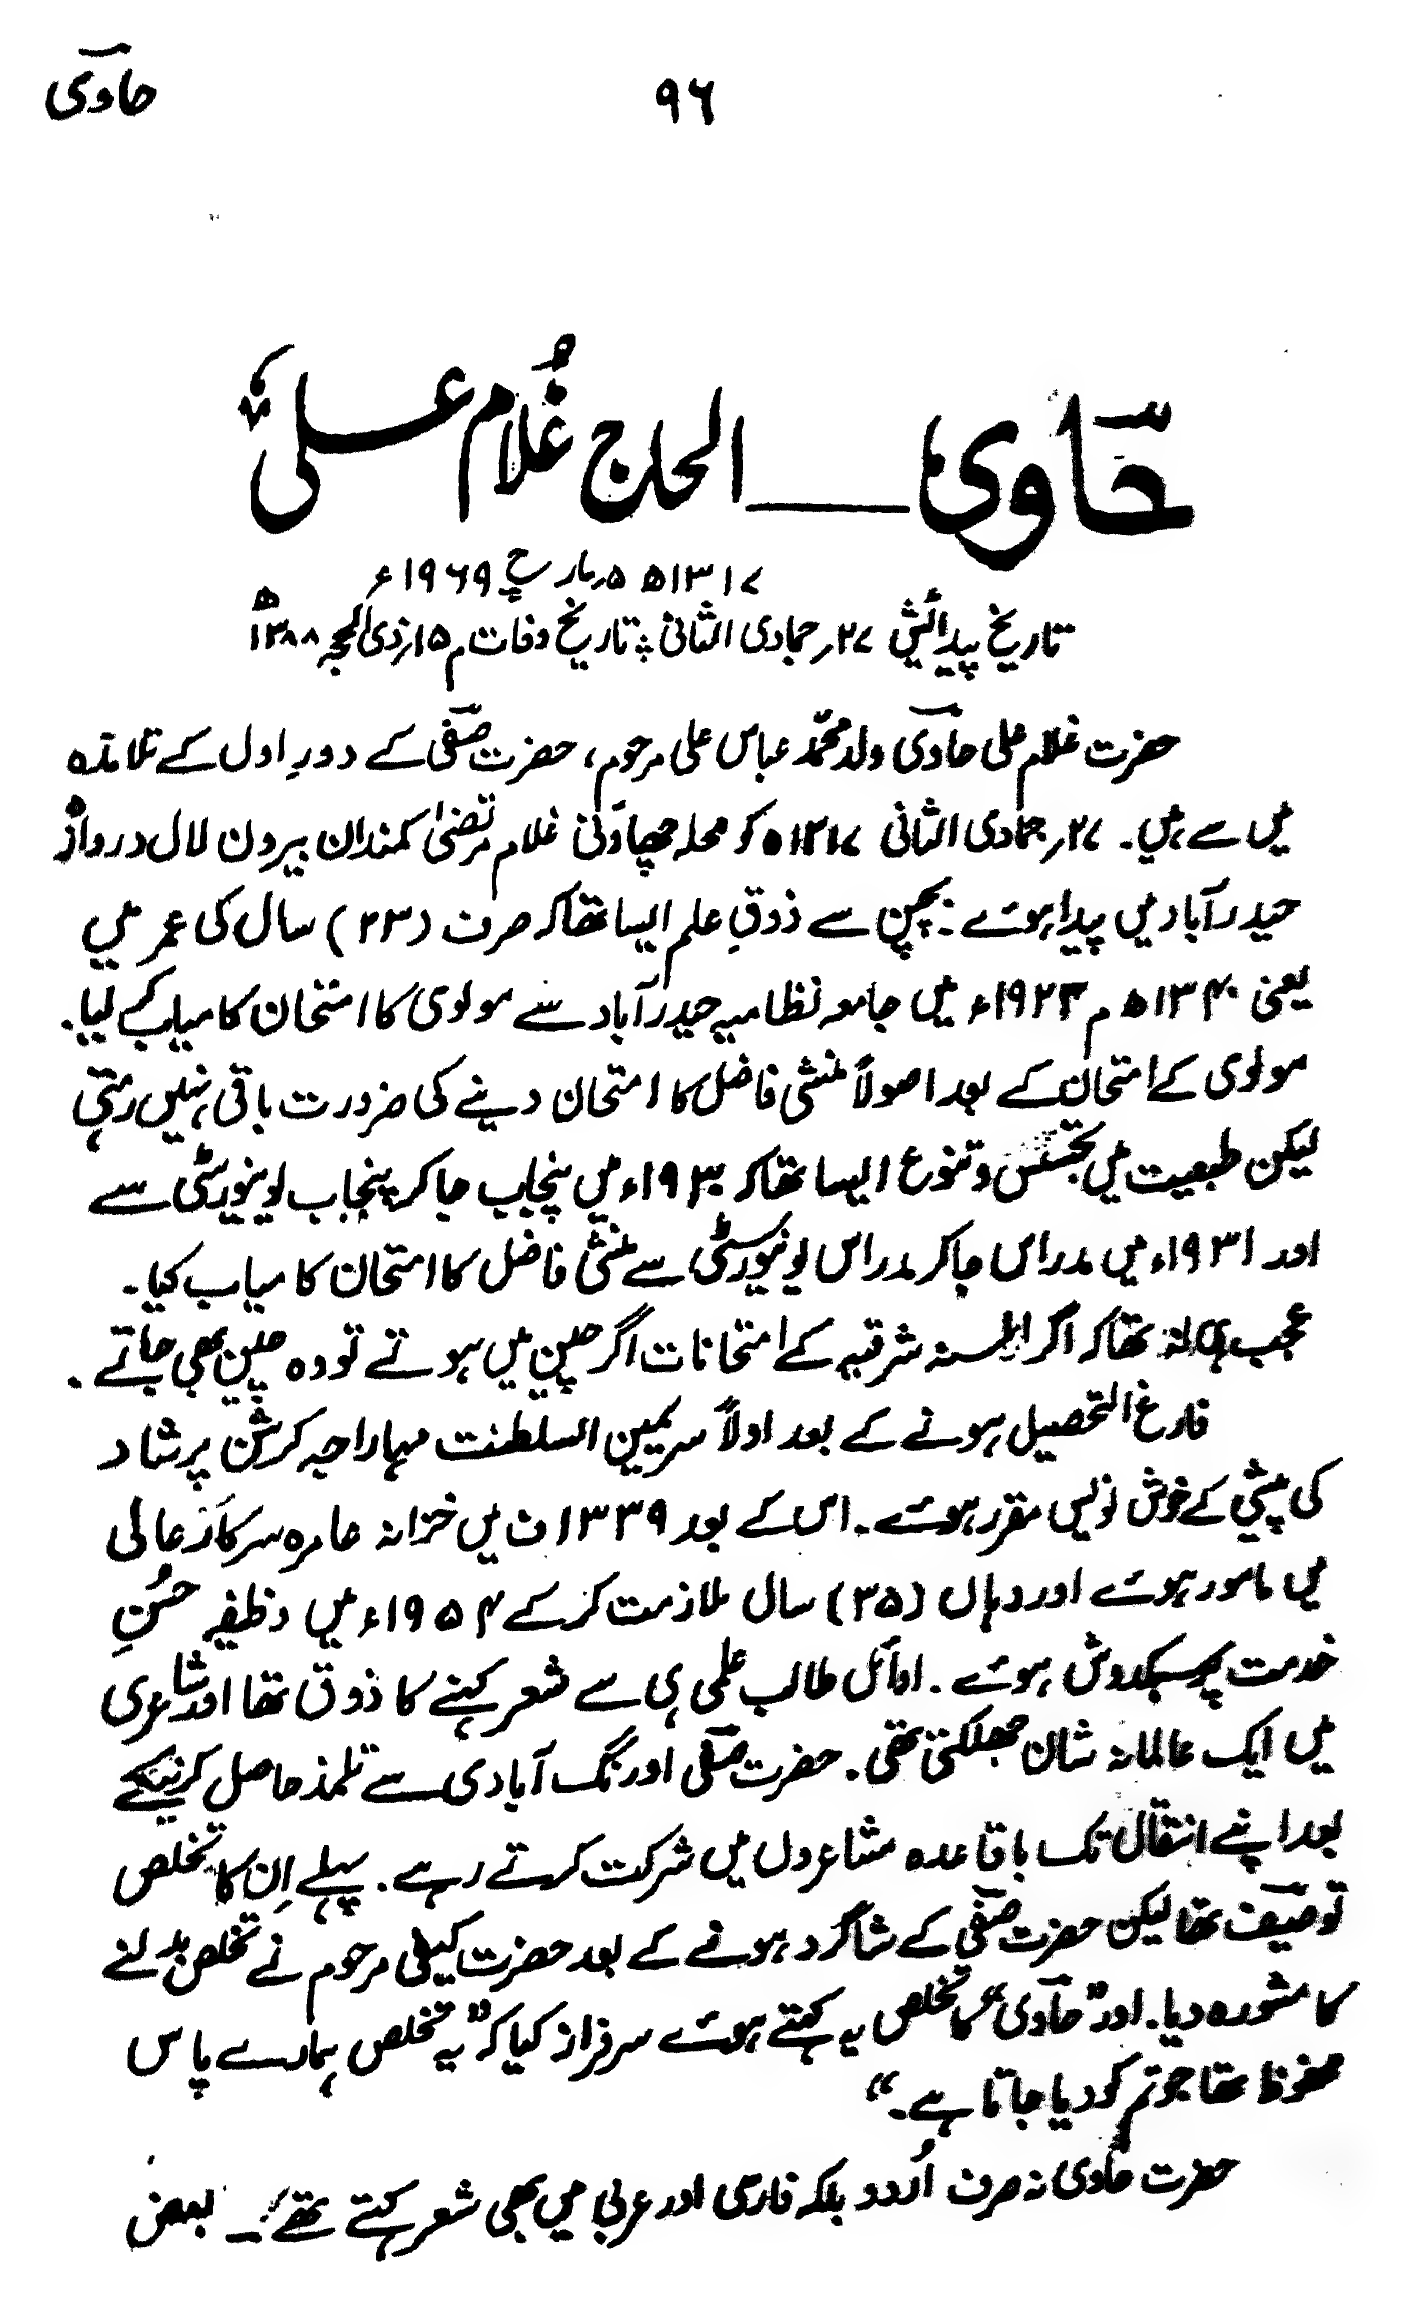 حاوی
۹۶
حاوی ــــ الحاج غلام علیؒ
۱۳۱۷ھ ۵ مارچ ۱۹۶۹ء
تاریخ پیدائش ۲۷؍ جمادی الثانی ؛ تاریخ وفات م ۱۵؍ ذی الحجہ ۱۳۸۸ھ
حضرت غلام علی حاوی ولد محمد عباس علی مرحوم، حضرت صفی کے دورِ اول کے تلامذہ
میں سے ہیں۔ ۲۷؍ جمادی الثانی ۱۳۱۷ھ کو محلہ چھاؤنی غلام مرتضیٰ کمندان بیرون لال دروازہ
حیدرآباد میں پیدا ہوئے۔ بچپن سے ذوقِ علم ایسا تھا کہ صرف (۲۳) سال کی عمر میں
یعنی ۱۳۴۰ھ م ۱۹۲۳ء میں جامعہ نظامیہ حیدرآباد سے مولوی کا امتحان کامیاب کرلیا۔
مولوی کے امتحان کے بعد اصولاً منشی فاضل کا امتحان دینے کی ضرورت باقی نہیں رہتی
لیکن طبعیت میں تجسس و تنوع ایسا تھا کہ ۱۹۳۰ء میں پنجاب جا کر پنجاب یونیورسٹی سے
اور ۱۹۳۱ء میں مدراس جا کر مدراس یونیورسٹی سے منشی فاضل کا امتحان کامیاب کیا۔
عجب نہ تھا کہ اگر السنہ شرقیہ کے امتحانات اگر چین میں ہوتے تو وہ چین بھی جاتے۔
فارغ التحصیل ہونے کے بعد اولاً سر یمین السلطنت مہاراجہ کرشن پرشاد
کی پیشی کے خوش نویس مقرر ہوئے۔ اس کے بعد ۱۳۳۹ف میں خزانہ عامرہ سرکار عالی
میں مامور ہوئے اور وہاں (۳۵) سال ملازمت کر کے ۱۹۵۴ء میں وظیفہ حسنِ
خدمت پر سبکدوش ہوئے۔ اوائل طالب علمی ہی سے شعر کہنے کا ذوق تھا اور شاعری
میں ایک عالمانہ شان جھلکتی تھی۔ حضرت صفی اورنگ آبادی سے تلمذ حاصل کرنیکے
بعد اپنے انتقال تک باقاعدہ مشاعروں میں شرکت کرتے رہے۔ پہلے اِن کا تخلص
توصیف تھا لیکن حضرت صفی کے شاگرد ہونے کے بعد حضرت کیفی مرحوم نے تخلص بدلنے
کا مشورہ دیا۔ اور ”حاوی“ کا تخلص یہ کہتے ہوئے سرفراز کیا کہ ”یہ تخلص ہمارے پاس
محفوظ تھا جو تم کو دیا جاتا ہے۔“
حضرت حاوی نہ صرف اُردو بلکہ فارسی اور عربی میں بھی شعر کہتے تھے۔ بعض